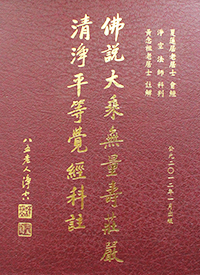 夏蓮居老居士 會經
淨空法師 科判
黃念祖老居士 註解
公元二〇一二年一月出版
佛說大乘無量壽莊嚴
清淨平等覺經科註
八五老人淨空